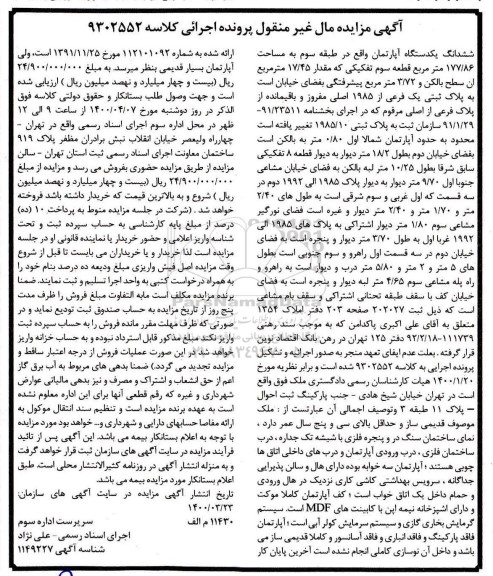 آگهی مزایده مال غیر منقول پرونده اجرائی کلاسه ۹۳۰۲۵۵۲
ششدانگ یکدستگاه آپارتمان واقع در طبقه سوم به مساحت
۱۷۷/۸۶ متر مربع قطعه سوم تفکیکی که مقدار ۱۷/۴۵ مترمربع
آن سطح بالکن و ۳/۷۲ متر مربع پیشرفتگی بفضای خیابان است
به پلاک ثبتی یک فرعی از ۱۹۸۵ اصلی مفروز و باقیمانده از
پلاک فرعی از اصلی مرقوم که در اجرای بخشنامه ۹۱/۲۳۵۱۱-
۹۱/۱/۲۹ سازمان ثبت به پلاک ثبتی ۱۹۸۵/۱۰ تغییر یافته است
محدود به حدود آپارتمان شمالا اول ۰/۸۰ متر به بالکن است
بفضای خیابان دوم بطول ۱۸/۲ متر دیوار به دیوار قطعه ۸ تفکیکی
سابق شرقا بطول ۱۰/۲۵ متر لبه بالکن به فضای خیابان مشاعی
جنوبا اول ۹/۷۰ متر دیوار به دیوار پلاک ۱۹۸۵ الی ۱۹۹۲ دوم در
سه قسمت که اول غربی و سوم شرقی است به طول های ۲/۴۰
متر و ۱/۷۰ متر و ۲/۴۰ متر دیوار و غیره است فضای نورگیر
مشاعی سوم ۱/۸۰ متر دیوار اشتراکی به پلاک های ۱۹۸۵ الی
۱۹۹۲ غربا اول به طول ۳/۷۰ متر دیوار و پنجره است به فضای
خیابان دوم در سه قسمت اول راهرو و سوم جنوبی است بطول
های ۵ متر و ۲ متر و ۵/۸۰ متر درب و دیوار است به راهرو و
راه پله مشاعی سوم ۴/۶۵ متر لبه دیوار و پنجره است به فضای
خیابان کف با سقف طبقه تحتانی اشتراکی و سقف بام مشاعی
است که ذیل ثبت ۲۰۲۰۲۷ صفحه ۲۰۳ دفتر املاک ۱۳۵۴
متعلق به آقای علی اکبری پاکدامن که به موجب سند رهنی
۱۱۱۷۳۹-۹۲/۲/۱۸ دفتر ۱۲۵ تهران در رهن بانک اقتصاد نوین
قرار گرفته . بعلت عدم ایفای تعهد منجر به صدور اجرائیه و تشکیل
پرونده اجرایی به کلاسه ۹۳۰۲۵۵۲ شده است و برابر نظریه مورخ
۱۴۰۰/۱/۲۰ هیات کارشناسان رسمی دادگستری ملک فوق واقع
است در تهران خیابان شیخ هادی - جنب پارکینگ ثبت احوال
- پلاک ۱۱ طبقه ۳ وتوصیف اجمالی آن عبارتست از : ملک
موصوف قدیمی ساز و حداقل بالای سی و پنج سال عمر دارد ،
نمای ساختمان سنگ در و پنجره فلزی با شیشه تک جداره ، درب
ساختمان فلزی ، درب ورودی آپارتمان و درب های داخلی اتاق ها
چوبی هستند ؛ آپارتمان سه خوابه بوده دارای هال و سالن پذیرایی
جداگانه ، سرویس بهداشتی کاشی کاری نزدیک در هال ورودی
و حمام داخل یک اتاق خواب است ؛ کف آپارتمان کاملا موکت
و دارای اشپزخانه نیمه اپن با کابینت های MDF است. سیستم
گرمایش بخاری گازی و سیستم سرمایش کولر آبی است ؛ آپارتمان
فاقد پارکینگ و فاقد انباری و فاقد آسانسور و کاملا قدیمی ساز می
باشد و داخل آن نوسازی کاملی انجام نشده است آخرین پایان کار
ارائه شده به شماره ۱۱۲۱۰۱۰۹۲ مورخ ۱۳۹۱/۱۱/۲۵ است، ولی
آپارتمان بسیار قدیمی بنظر میرسد. به مبلغ ۲۴/۹۰۰/۰۰۰/۰۰۰
ریال (بیست و چهار میلیارد و نهصد میلیون ریال ) ارزیابی شده
است و جهت وصول طلب بستانکار و حقوق دولتی کلاسه فوق
الذکر در روز دوشنبه مورخ ۱۴۰۰/۰۴/۰۷ از ساعت ۹ الی ۱۲
ظهر در محل اداره سوم اجرای اسناد رسمی واقع در تهران -
چهارراه ولیعصر خیابان انقلاب نبش برادران مظفر پلاک ۹۱۹
ساختمان معاونت اجرای اسناد رسمی ثبت استان تهران - سالن
مزایده از طریق مزایده حضوری بفروش می رسد و مزایده از مبلغ
۲۴/۹۰۰/۰۰۰/۰۰۰ ریال (بیست و چهار میلیارد و نهصد میلیون
ریال ) شروع و به بالاترین قیمت که خریدار داشته باشد فروخته
خواهد شد . (شرکت در جلسه مزایده منوط به پرداخت ۱۰ (ده)
درصد از مبلغ پایه کارشناسی به حساب سپرده ثبت و تحت
شناسه واریز اعلامی و حضور خریدار یا نماینده قانونی او در جلسه
مزایده است لذا خریدار و یا خریداران می بایست تا قبل از شروع
وقت مزایده اصل فیش واریزی مبلغ ودیعه ده درصد بنام خود را
به همراه درخواست کتبی به واحد اجرا تسلیم و ثبت نمایند. ضمنا
برنده مزایده مکلف است مابه التفاوت مبلغ فروش را ظرف مدت
پنج روز از تاریخ مزایده به حساب صندوق ثبت تودیع نماید و در
صورتی که ظرف مهلت مقرر مانده فروش را به حساب سپرده ثبت
واریز نکند مبلغ مذکور قابل استرداد نبوده و به حساب خزانه واریز
خواهد شد در این صورت عملیات فروش از درجه اعتبار ساقط و
مزایده تجدید می گردد.) ضمنا بدهی های مربوط به آب برق گاز
اعم از حق انشعاب و اشتراک و مصرف و نیز بدهی مالیاتی عوارض
شهرداری و غیره که رقم قطعی آنها برای این اداره معلوم نشده
است به عهده برنده مزایده است و تنظیم سند انتقال موکول به
ارائه مفاصا حسابهای دارایی و شهرداری و.. خواهد بود مورد مزایده
با توجه به اعلام بستانکار بیمه می باشد. این آگهی پس از تائید
فرآیند مزایده در سایت آگهی های سازمان ثبت قرار خواهد گرفت
و به منزله انتشار آگهی در روزنامه کثیرالانتشار محلی است. طبق
اعلام بستانکار مورد مزایده بیمه می باشد.
تاریخ انتشار آگهی مزایده در سایت آگهی های سازمان:
۱۴۰۰/۰۳/۲۳
۱۱۴۳۰ م الف
سرپرست اداره سوم
اجرای اسناد رسمی - علی نژاد
شناسه آگهی ۱۱۴۹۲۲۷